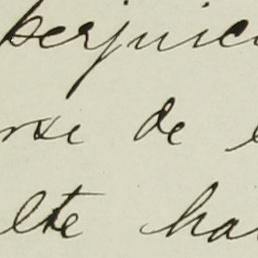 perjuici
rse de l
lte ha